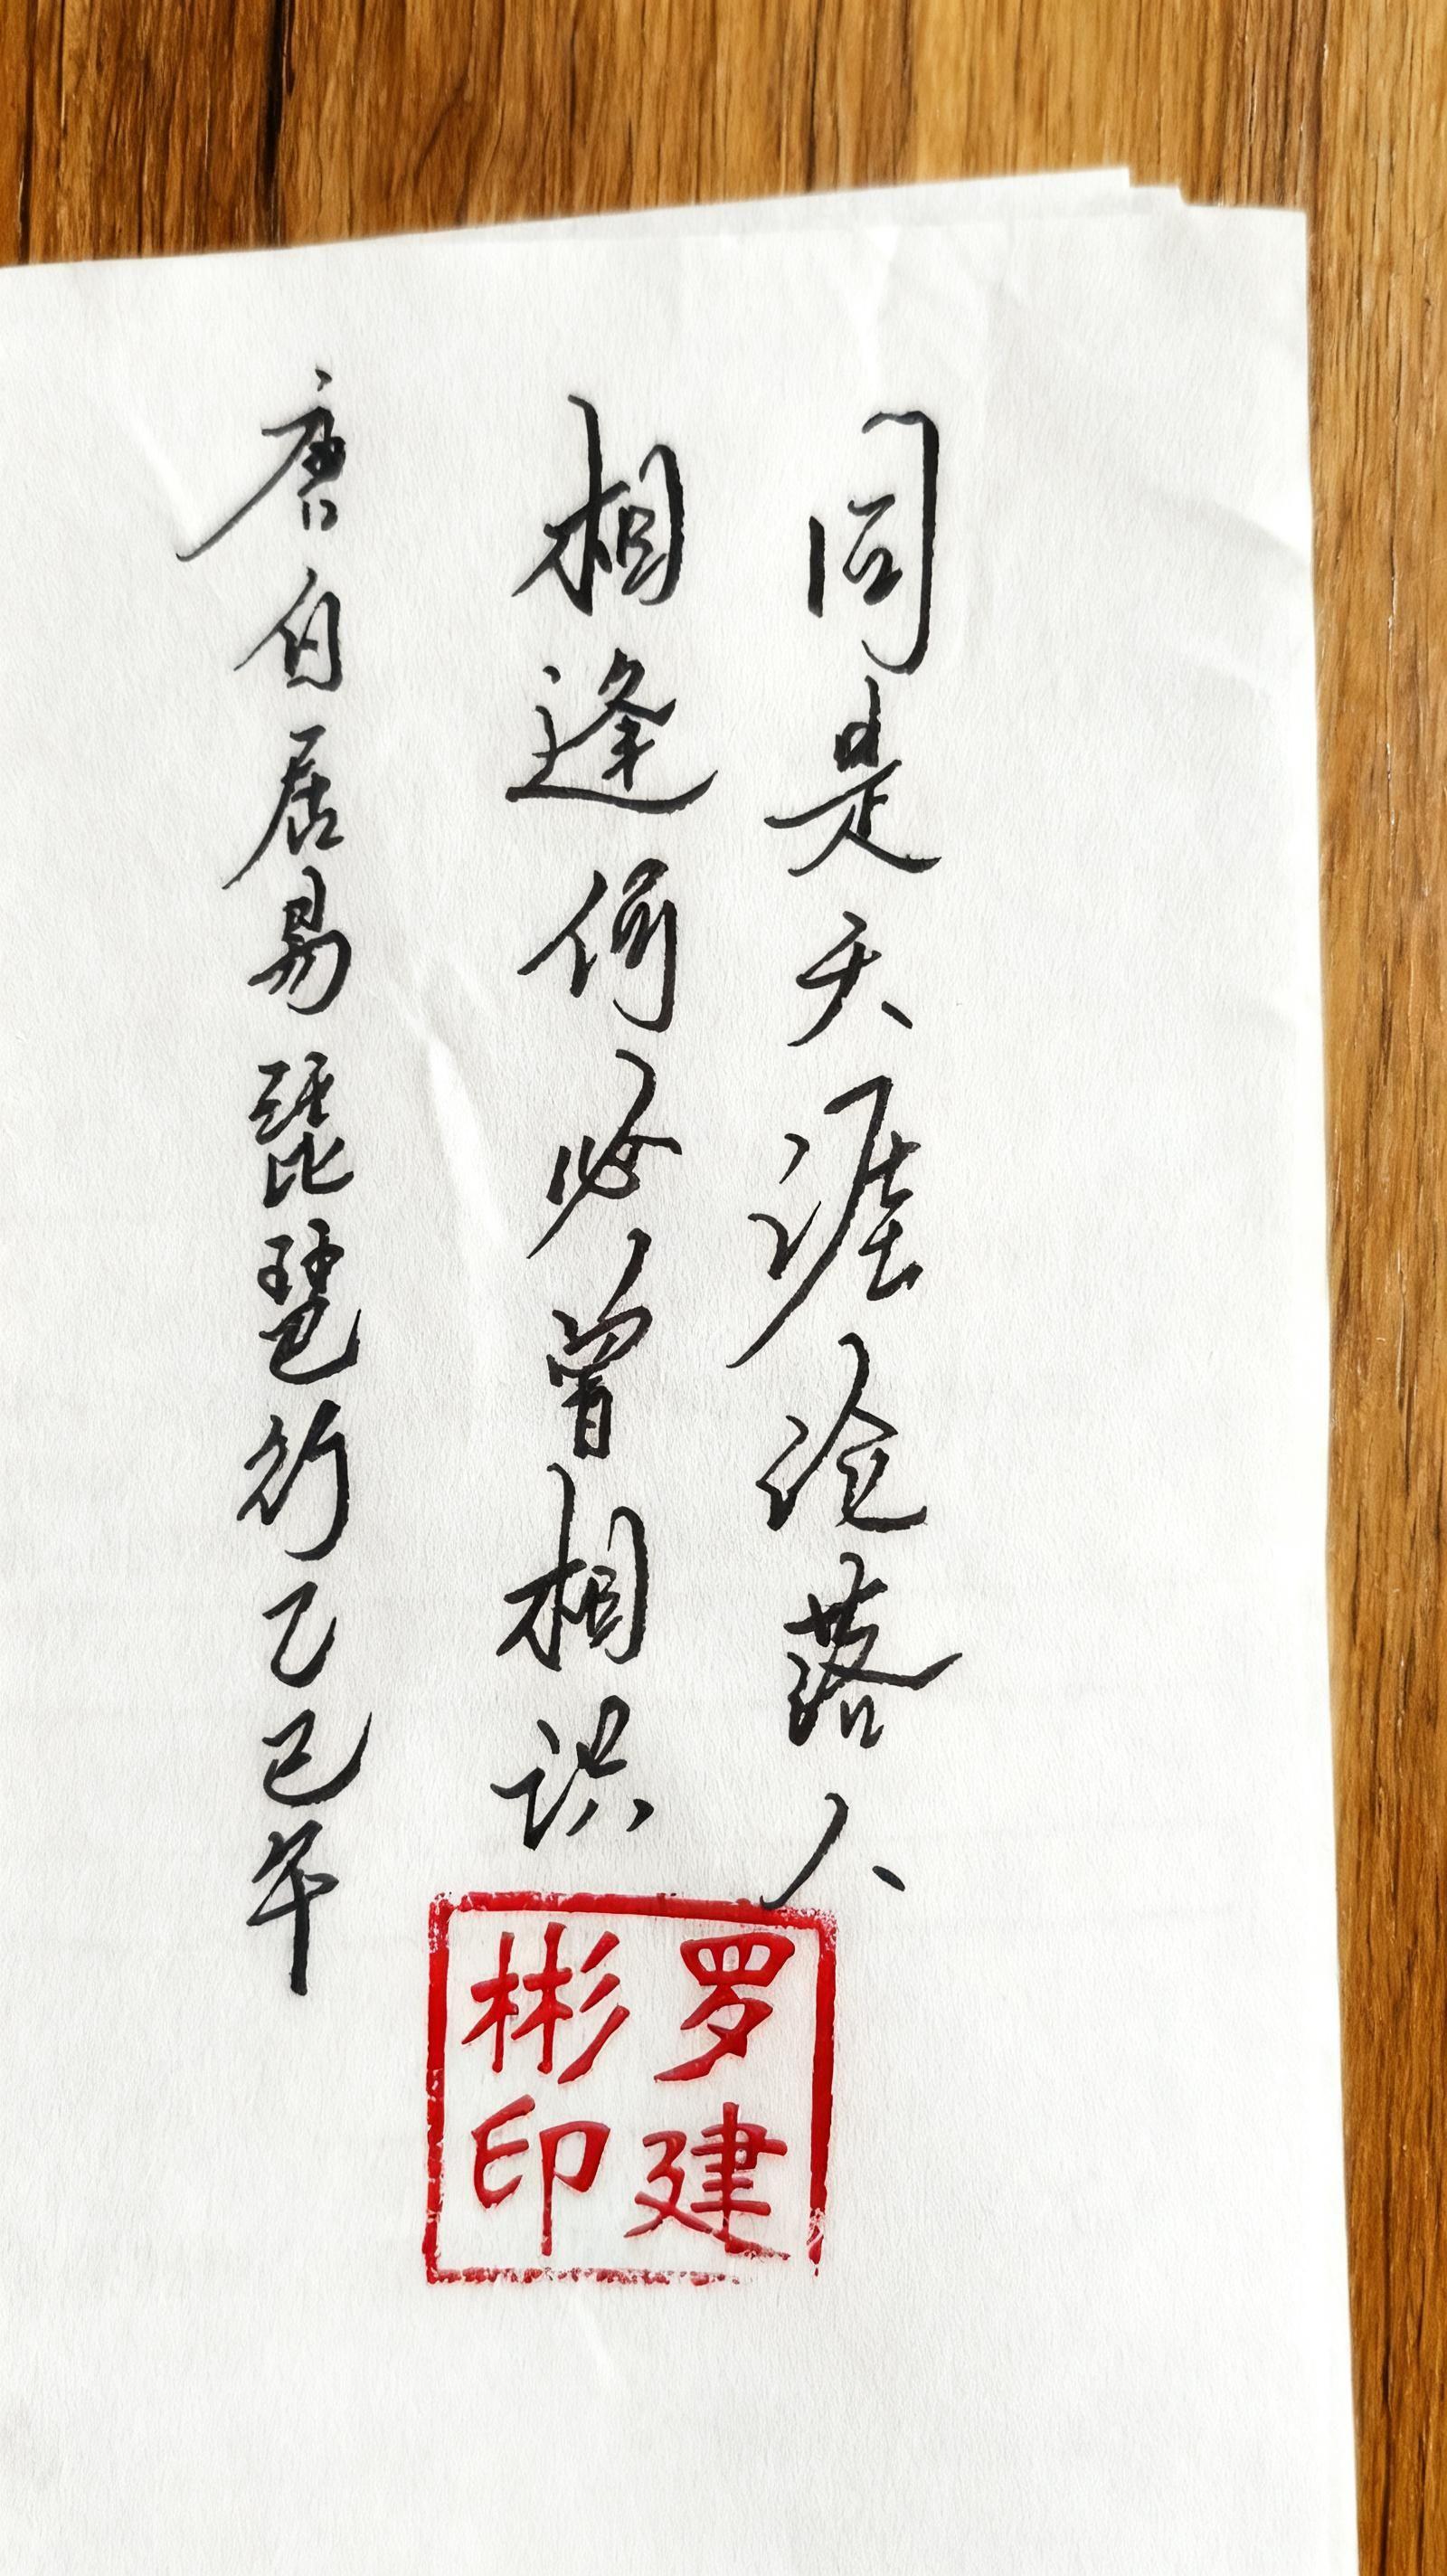 同是天涯沦落人
相逢何必曾相识
唐白居易琵琶行乙巳年
罗建
彬印